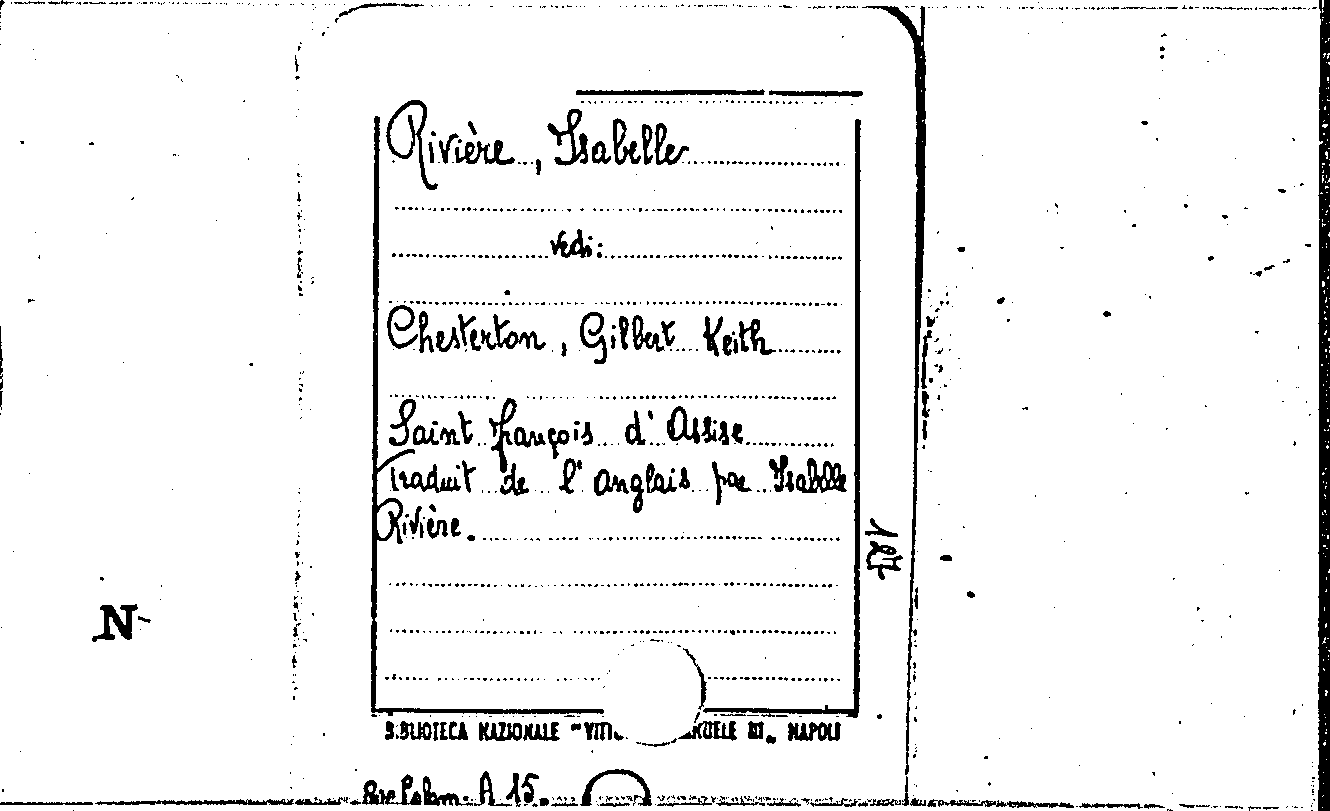 Rivière, Isabelle
vedi:
Chesterton, Gilbert Keith
Saint François d'Assise
Traduit de l'anglais par Isabelle
Rivière.
N
BIBLIOTECA NAZIONALE "VITT EMANUELE III" NAPOLI
A 15.